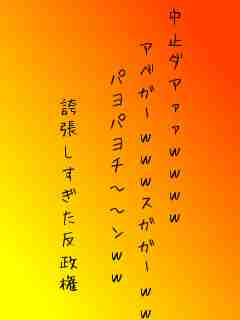 中止ダァァァwwwww
アベガーwwwスガガーww
パヨパヨチ～～ンww
誇張しすぎた反政権